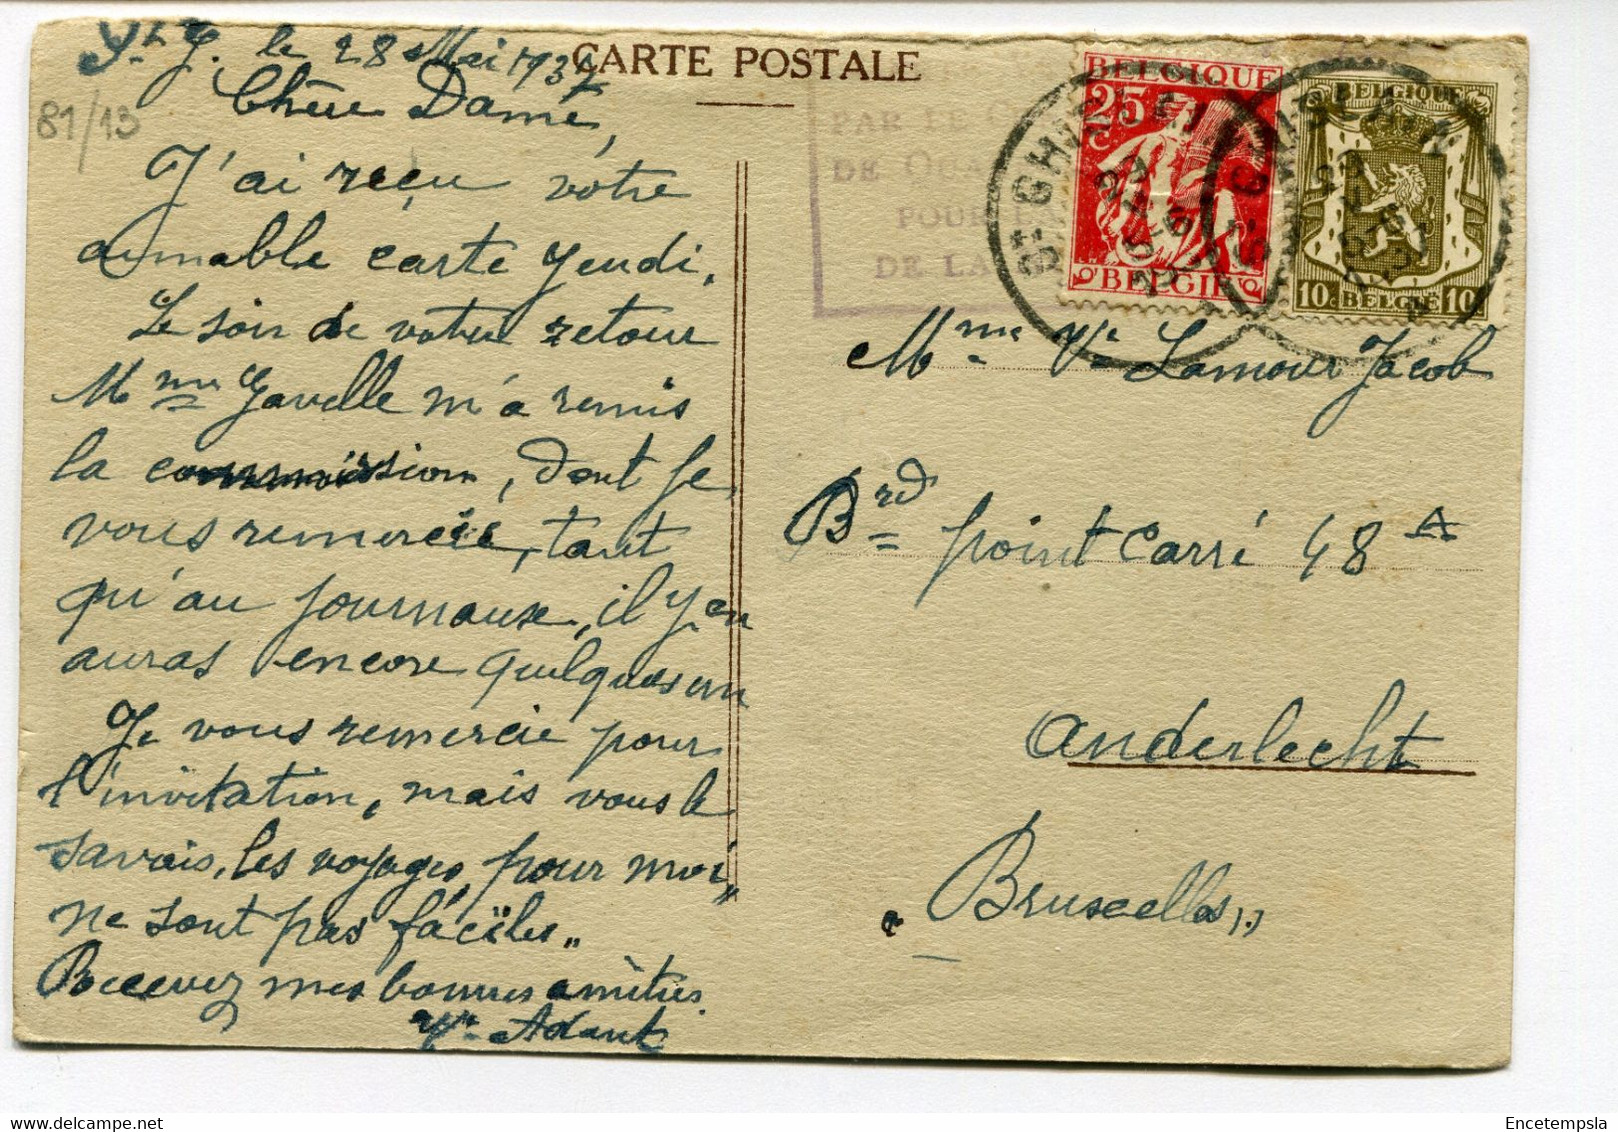 St G. le 28 Mai 1937
81/13
Chère Dame,
J'ai reçu votre
aimable carte Jeudi.
Le soir de votre retour
Mme Gavelle m'a remis
la commission, dont je
vous remercie, tant
qu'au journaux, il y en
auras encore quelques un
Je vous remercie pour
l'invitation, mais vous le
savais, les voyages, pour moi,,
ne sont pas faciles,,
Recevez mes bonnes amitiés
Ve Adant
CARTE POSTALE
PAR LE
DE QUA
POUR LA
DE LA
BELGIQUE
25
C
BELGIE
BELGIQUE
10c BELGIË 10c
ST GHISLAIN
Mme Ve Lamour Jacob
Brd point Carré 48 A
Anderlecht
Bruxelles
Encetempsla